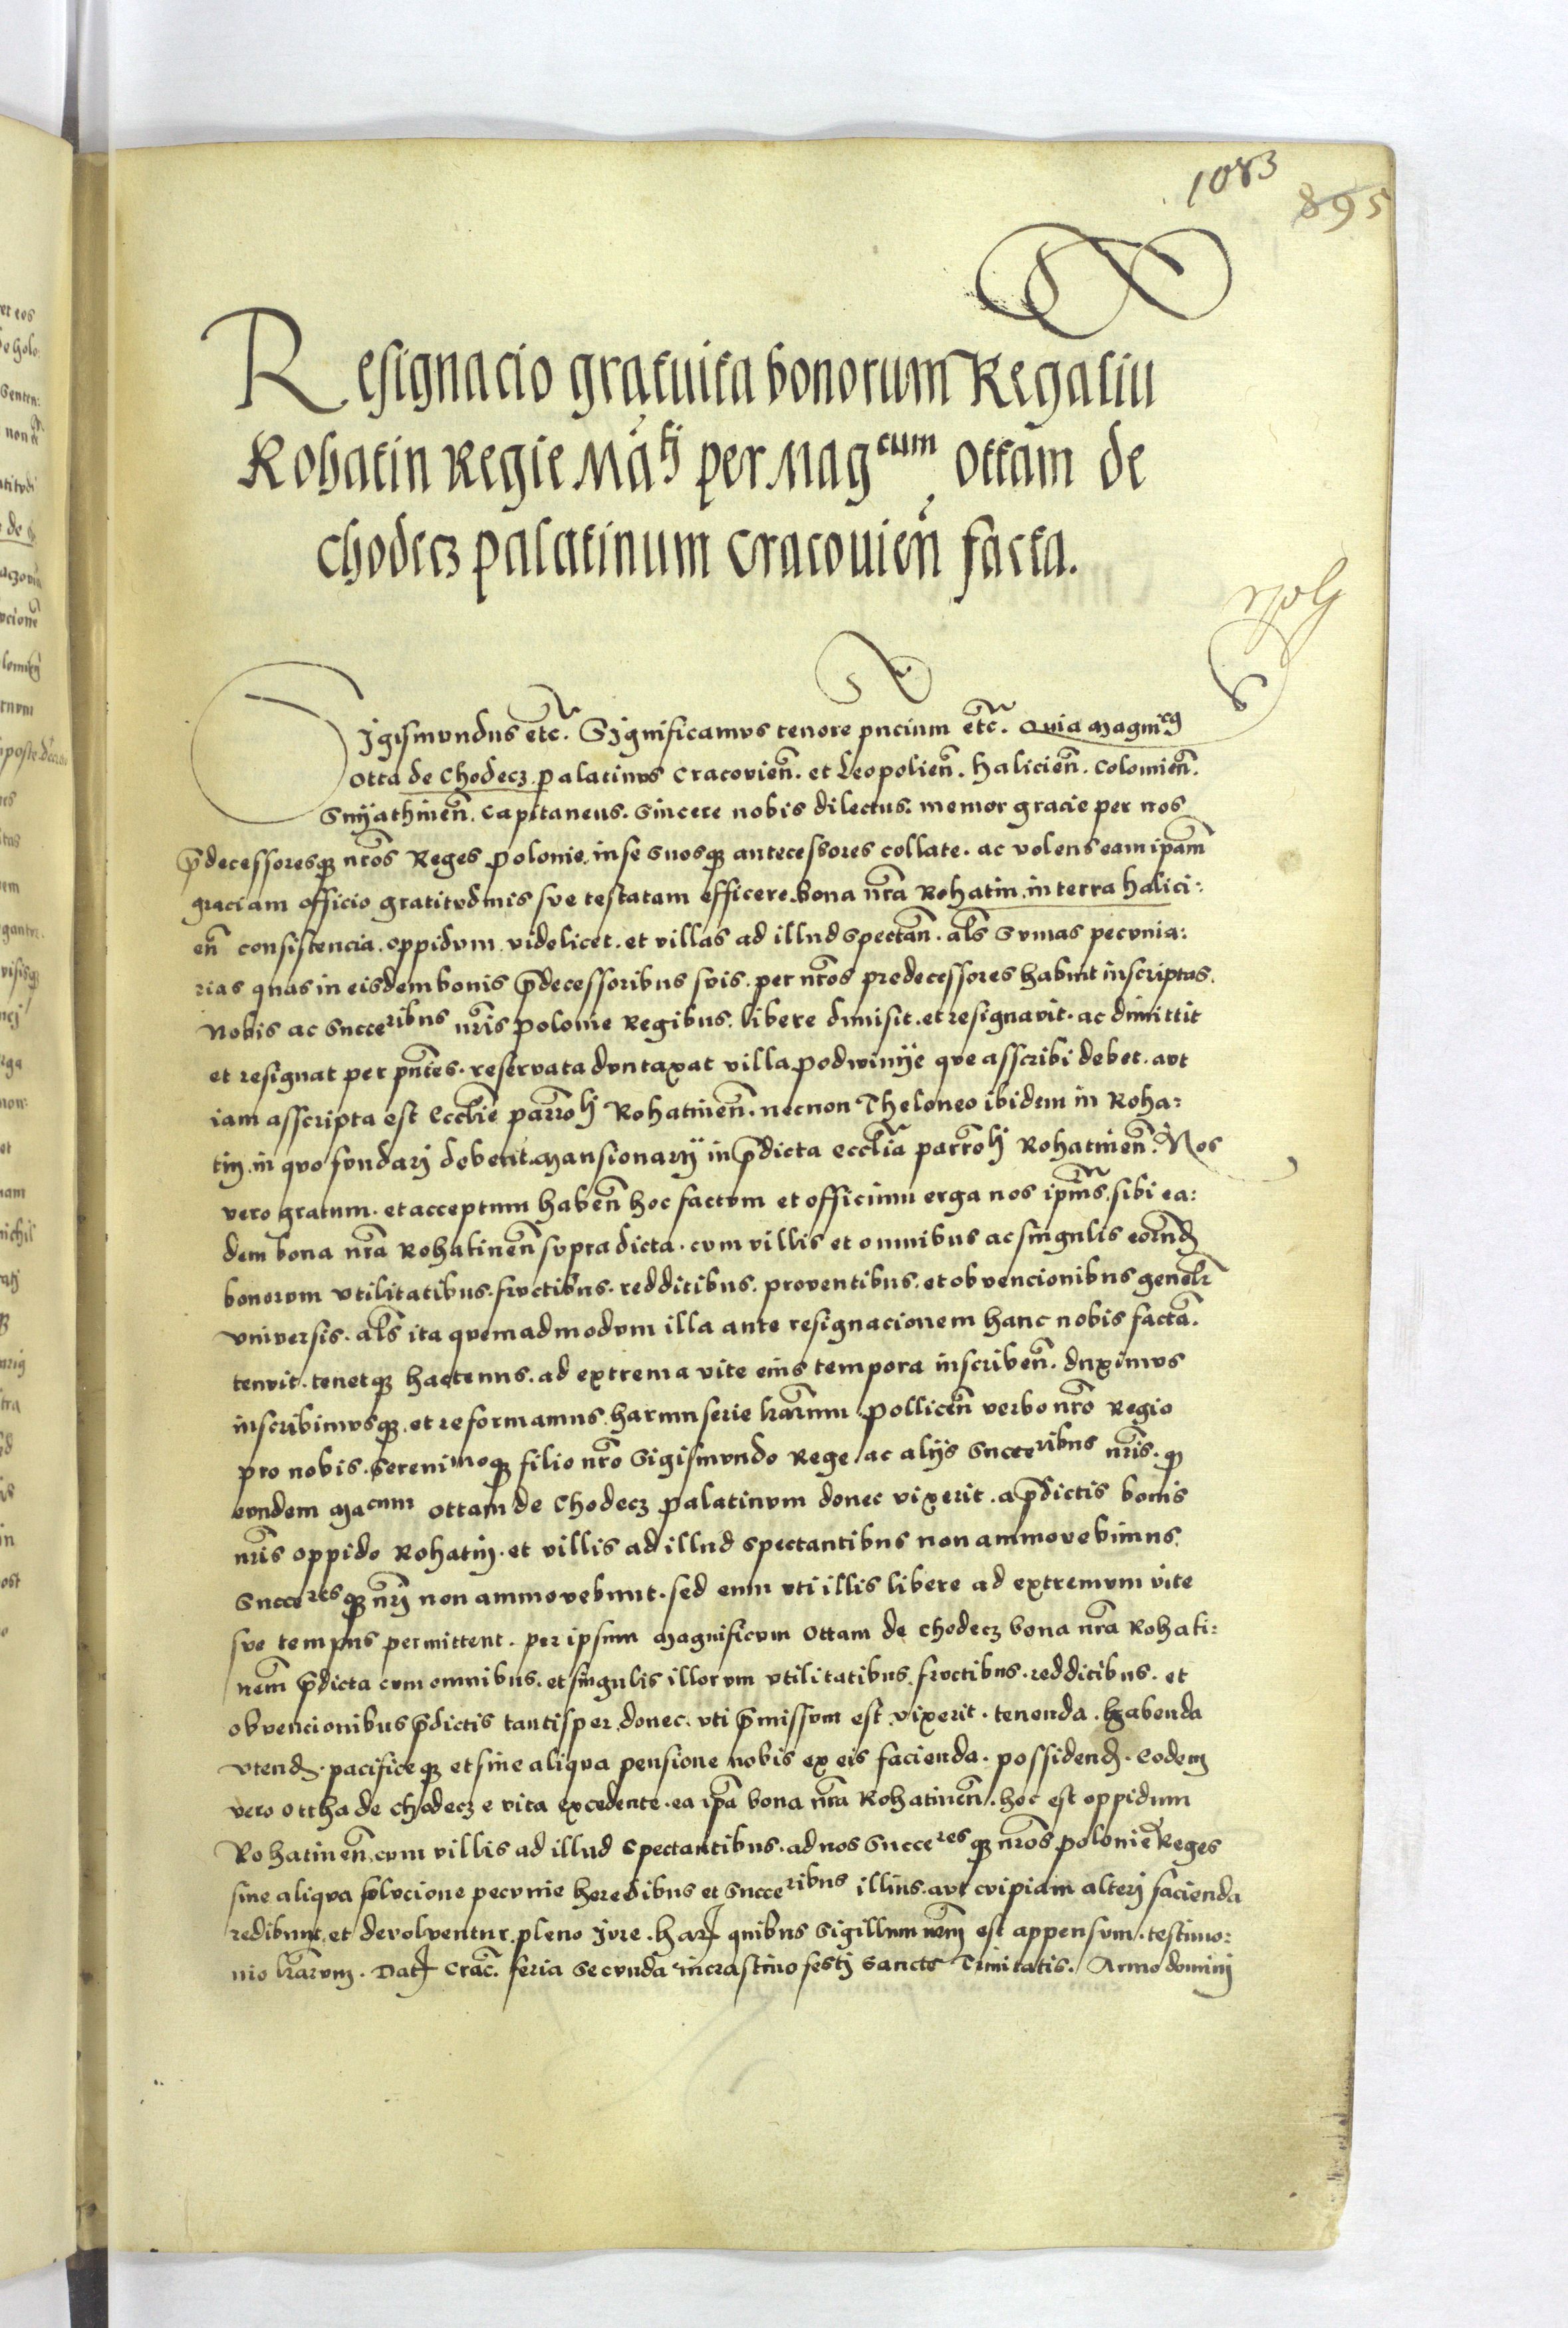 1083
895
Resignacio gratuita bonorum Regaliu
Rohatin Regie Ma^tj per Mag^cum Ottam de
Chodecz palatinum Cracouien̄ facta.
Sigismundus etc̄. Significamus tenore pn̄cium etc̄. Quia Magnī^cus
Otta de Chodecz. palatinus Cracovien̄. et Leopolien̄. Halicien̄. Colomien̄.
Snyathinen̄. Capitaneus. Sincere nobis dilectus. memor gracie per nos
p̄decessoresq nr̄os Reges Polonie. in se suosq antecessores collate. ac volens eam ip̄am
graciam officio gratitudinis sue testatam efficere. bona nr̄a Rohatin. in terra Halici:
en̄ consistencia. oppidum videlicet. et villas ad illud spectan̄. al̄s Sumas pecunia:
rias quas in eisdem bonis p̄decessoribus suis. per nr̄os predecessores habuit inscriptas.
Nobis ac Succe^ribus nr̄is Polonie Regibus. libere dimisit. et resignavit. ac dimittit
et resignat per pn̄tes. reservata duntaxat villa Podwinye que asscribi debet. aut
iam asscripta est Eccl̄ie parr̄olj Rohatinen̄. necnon Theloneo ibidem in Roha:
tin. in quo fundarj debent. Mansionarij in p̄dicta ecclīa parr̄olj Rohatinen̄. Nos
vero gratum. et acceptum haben̄ hoc factum et officium erga nos ip̄ius. sibi ea:
dem bona nr̄a Rohatinen̄ supradicta. cum villis et omnibus ac singulis eorund
bonorum utilitatibus. fructibus. redditibus. proventibus. et obvencionibus genelr̄
universis. al̄s ita quemadmodum illa ante resignacionem hanc nobis factā.
tenuit. tenetq hactenus. ad extrema vite eius tempora inscriben̄. duximus
inscribimusq. et reformamus. harum serie lr̄arum. Pollicen̄ verbo nr̄o Regio
pro nobis. Sereni^moq filio nr̄o Sigismundo Rege. ac alijs Succe^ribus nr̄is. q
eundem Ma^cum Ottam de Chodecz palatinum donec vixerit. a p̄dictis bonis
nr̄is oppido Rohatin. et villis ad illud spectantibus non ammovebimus.
Succe^resq nr̄j non ammovebunt. sed eum uti illis libere ad extremum vite
sue tempus permittent. per ipsum Magnificum Ottam de Chodecz bona nr̄a Rohati:
nen̄ p̄dicta cum omnibus. et singulis illorum utilitatibus. fructibus. redditibus. et
obvencionibus p̄dictis tantisper. donec. uti p̄missum est. vixerit. tenenda. habenda
utend. pacificeq et sine aliqua pensione nobis ex eis facienda. possidend. Eodem
vero Ottha de Chodecz e vita excedente. ea ip̄a bona nr̄a Rohatinen̄. hoc est oppidum
Rohatinen̄. cum villis ad illud spectantibus. ad nos Succe^resq nr̄os Polonie Reges
sine aliqua solucione pecunie heredibus et Succe^ribus illius. aut cuipiam alterj facienda
redibunt. et devolventur. pleno Jure. Har quibus Sigillum nr̄m est appensum. testimo:
nio lr̄arum. Dat Crac̄. feria secunda in crastino festj Sancte Trinitatis. Anno dominj